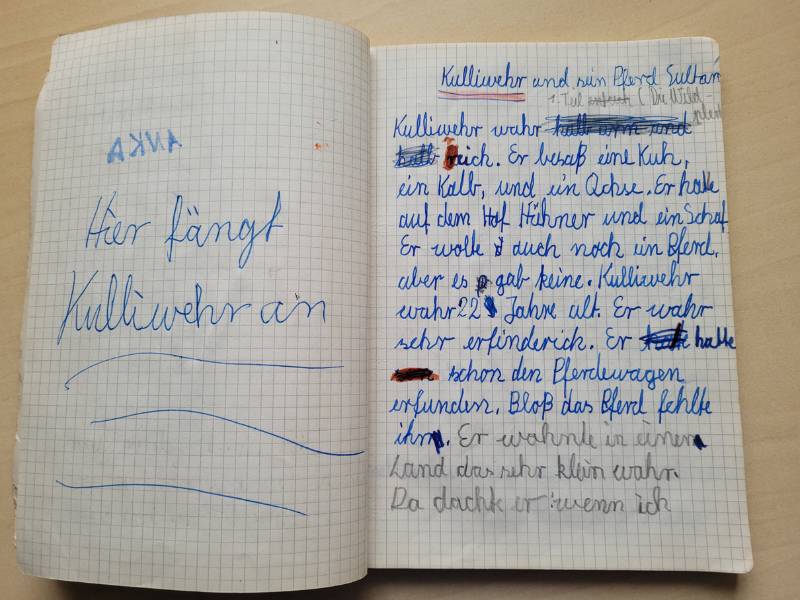 ANKA
Hier fängt
Kulliwehr an
Kulliwehr und sein Pferd Sultan
1. Teil (Die Wild-
pferde
Kulliwehr wahr halb arm und
halb reich. Er besaß eine Kuh,
ein Kalb, und ein Ochse. Er hatte
auf dem Hof Hühner und ein Schaf
Er wolte auch noch ein Pferd,
aber es gab keine. Kulliwehr
wahr 22 Jahre alt. Er wahr
sehr erfinderich. Er hatte
schon den Pferdewagen
erfunden. Bloß das Pferd fehlte
ihm. Er wohnte in einem
Land das sehr klein wahr.
Da dachte er: wenn ich